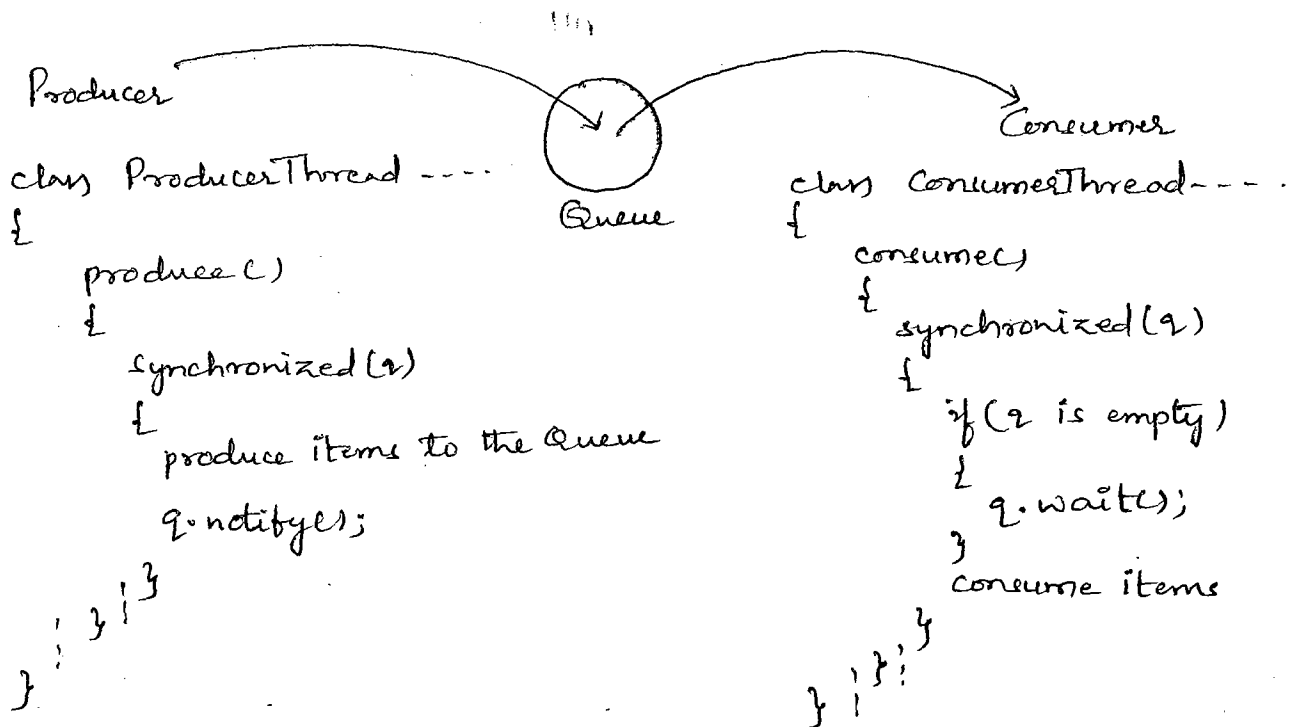 Producer
Consumer
Queue
class ProducerThread ----
{
produce()
{
synchronized(q)
{
produce items to the Queue
q.notify();
}
}
}
class ConsumerThread----
{
consume()
{
synchronized(q)
{
if (q is empty)
{
q.wait();
}
consume items
}
}
}